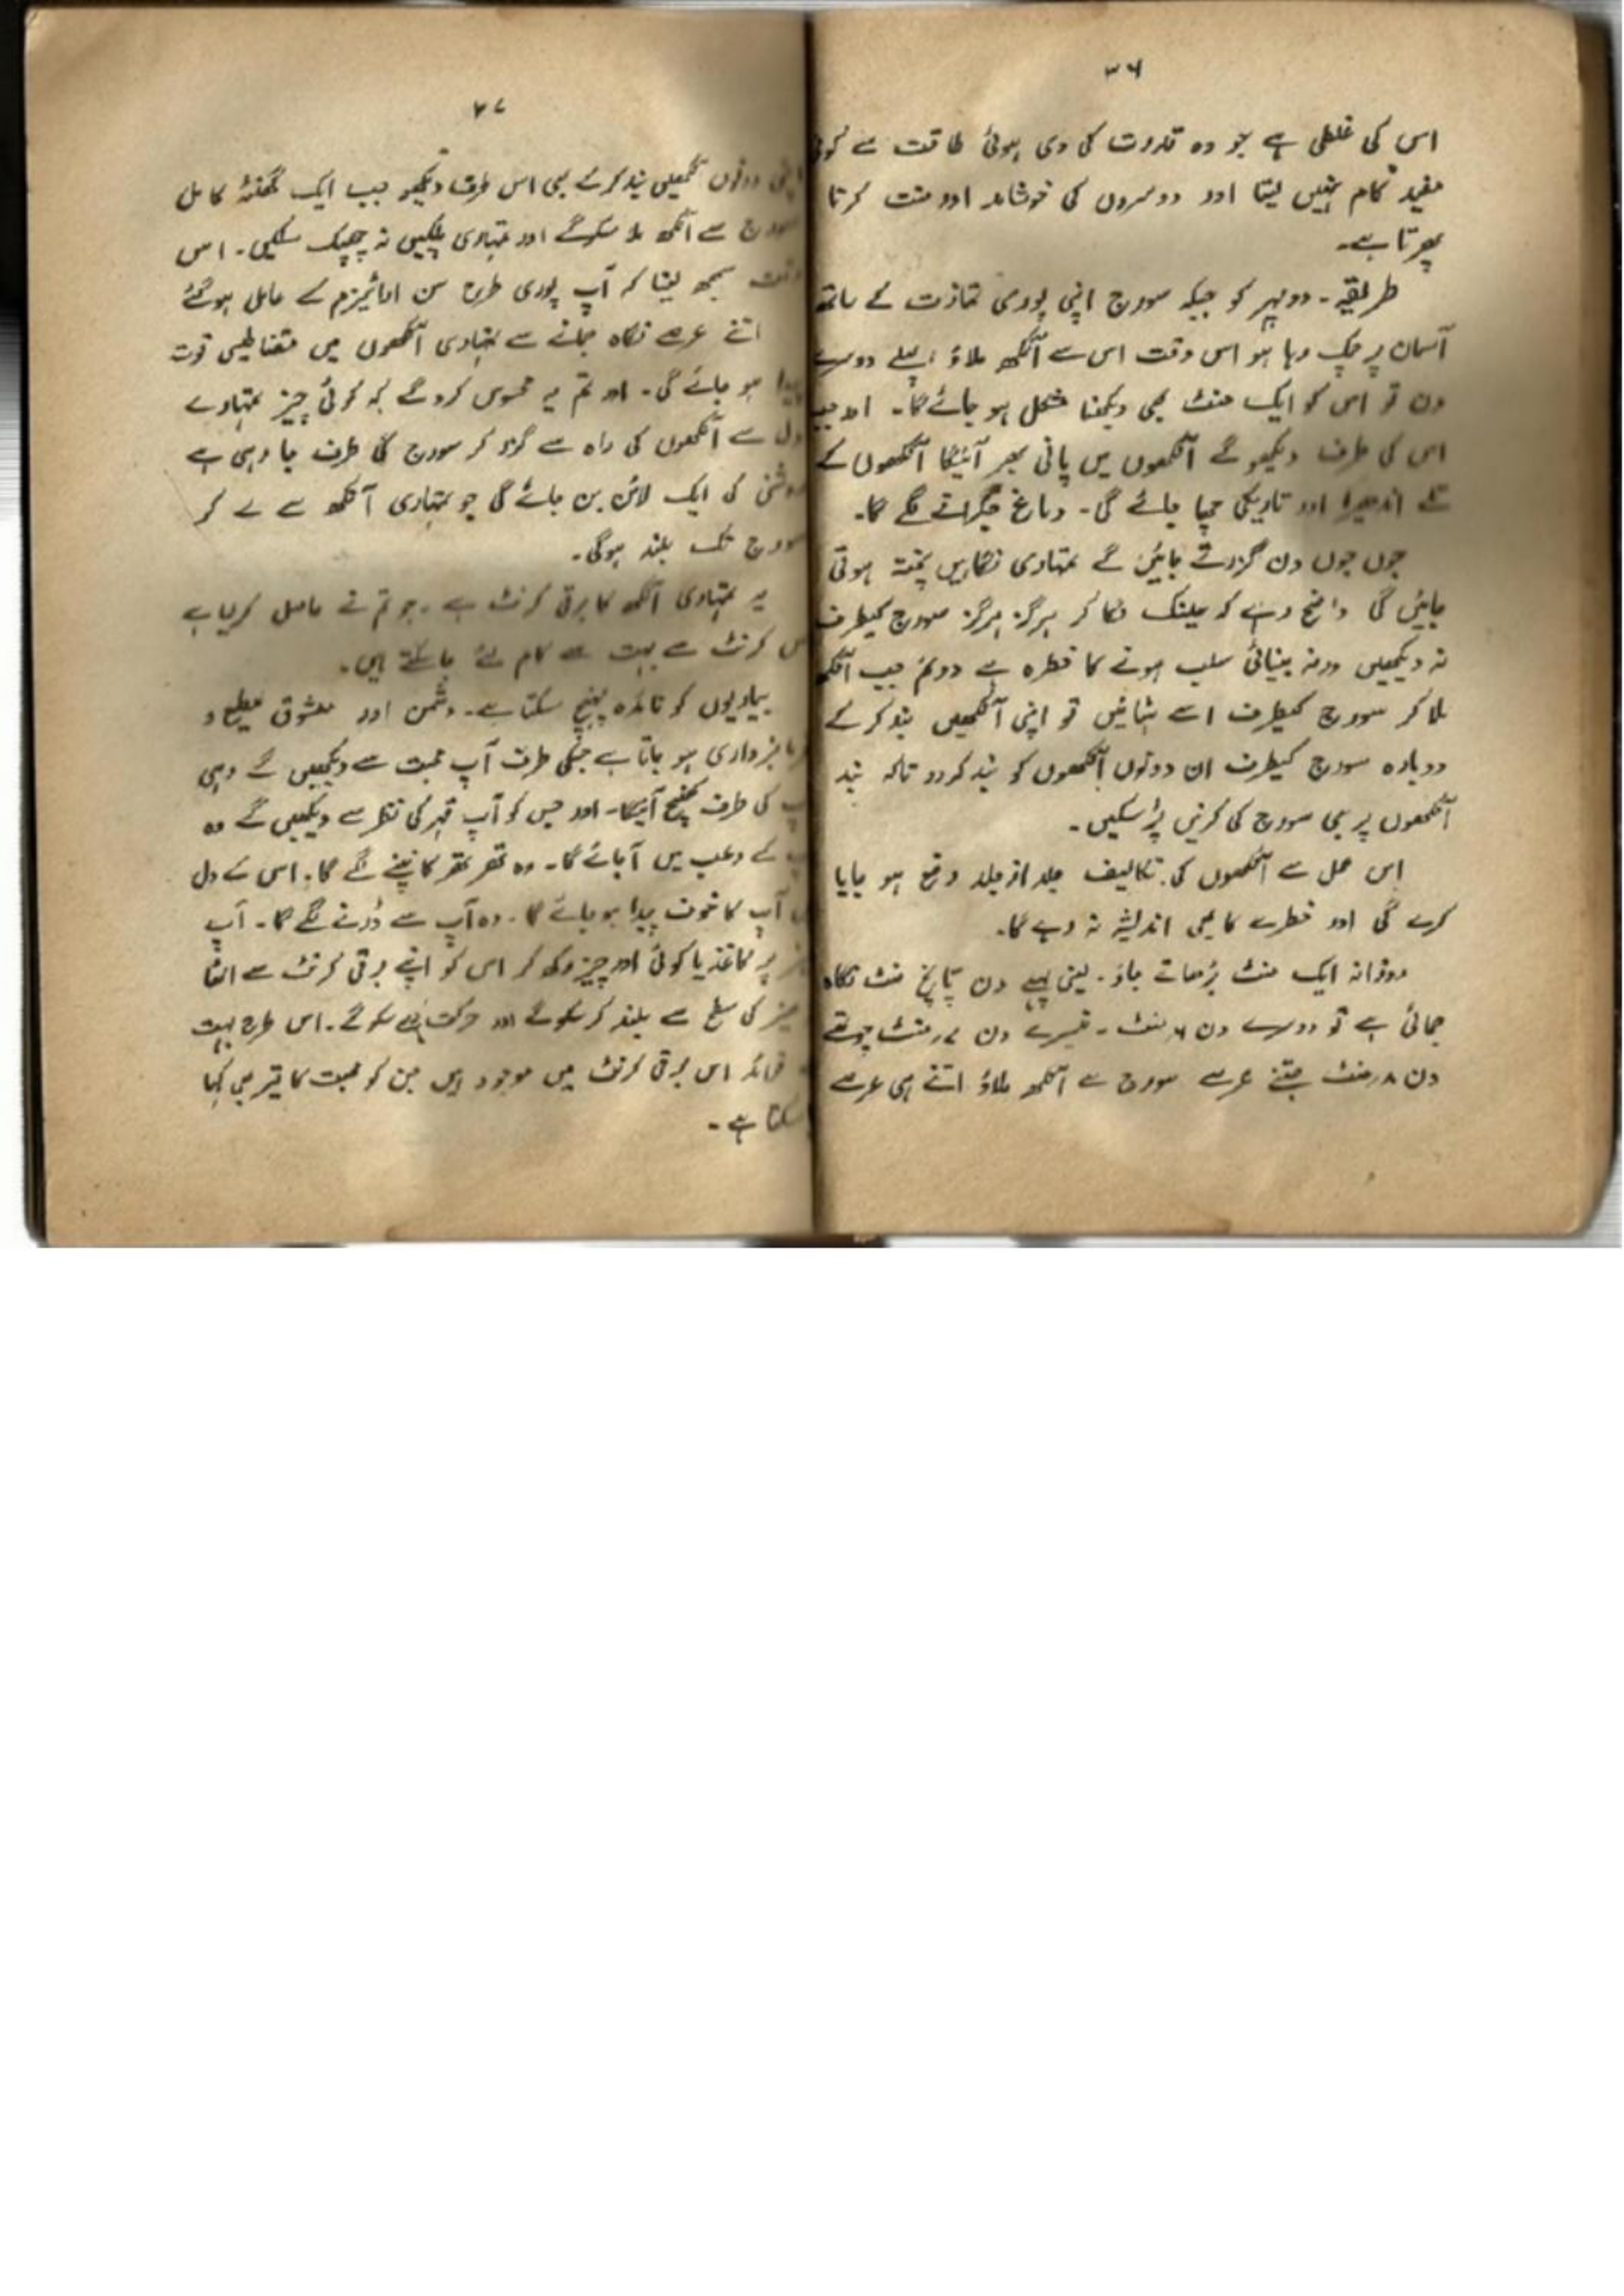 ۳۶
اس کی غلطی ہے جو وہ قدرت کی دی ہوئی طاقت سے کوئی
مفید کام نہیں لیتا اور دوسروں کی خوشامد اور منت کرتا
پھرتا ہے۔
طریقہ۔ دوپہر کو جبکہ سورج اپنی پوری تمازت کے ساتھ
آسمان پر چمک رہا ہو اس وقت اس سے آنکھ ملاؤ پہلے دوسرے
دن تو اس کو ایک منٹ بھی دیکھنا مشکل ہو جائے گا۔ اور جب
اس کی طرف دیکھو گے آنکھوں میں پانی بھر آئیگا آنکھوں کے
تلے اندھیرا اور تاریکی چھا جائے گی۔ دماغ چکرانے لگے گا۔
جوں جوں دن گزرتے جائیں گے تمہاری نگاہیں پختہ ہوتی
جائیں گی واضح رہے کہ عینک لگا کر ہرگز ہرگز سورج کیطرف
نہ دیکھیں ورنہ بینائی سلب ہونے کا خطرہ ہے دوئم جب آنکھ
ملا کر سورج کیطرف اسے ہٹائیں تو اپنی آنکھیں بند کر کے
دوبارہ سورج کیطرف ان دونوں آنکھوں کو بند کردو تاکہ بند
آنکھوں پر بھی سورج کی کرنیں پڑ سکیں۔
اس عمل سے آنکھوں کی تکالیف جلد از جلد رفع ہو جایا
کرے گی اور خطرے کا بھی اندیشہ نہ رہے گا۔
روزانہ ایک منٹ بڑھاتے جاؤ۔ یعنی پہلے دن پانچ منٹ نگاہ
جمائی ہے تو دوسرے دن ۶ منٹ۔ تیسرے دن ۷ منٹ چوتھے
دن ۸ منٹ جتنے عرصے سورج سے آنکھ ملاؤ اتنے ہی عرصے
۳۷
اپنی دونوں آنکھیں بند کر کے بھی اس طرف دیکھو جب ایک گھنٹہ کامل
سورج سے آنکھ ملا سکو گے اور تمہاری پلکیں نہ جھپک سکیں۔ اس
وقت سمجھ لینا کہ آپ پوری طرح سن کے عامل ہو گئے
اتنے عرصے نگاہ جمانے سے تمہاری آنکھوں میں مقناطیسی قوت
پیدا ہو جائے گی۔ اور تم یہ محسوس کرو گے کہ کوئی چیز تمہارے
دل سے آنکھوں کی راہ سے گزر کر سورج کی طرف جا رہی ہے
روشنی کی ایک لائن بن جائے گی جو تمہاری آنکھ سے لے کر
سورج تک بلند ہوگی۔
یہ تمہاری آنکھ کا برقی کرنٹ ہے۔ جو تم نے حاصل کرلیا ہے
اس کرنٹ سے بہت سے کام لئے جا سکتے ہیں۔
بیماریوں کو فائدہ پہنچ سکتا ہے۔ دشمن اور معشوق مطیع و
فرمانبرداری ہو جاتا ہے جسکی طرف آپ محبت سے دیکھیں گے وہی
آپ کی طرف کھنچ آئیگا۔ اور جس کو آپ قہر کی نظر سے دیکھیں گے وہ
آپ کے رعب میں آ جائے گا۔ وہ تھر تھر کانپنے لگے گا۔ اس کے دل
میں آپ کا خوف پیدا ہو جائے گا۔ وہ آپ سے ڈرنے لگے گا۔ آپ
میز پر کاغذ یا کوئی اور چیز رکھ کر اس کو اپنے برقی کرنٹ سے اٹھا
میز کی سطح سے بلند کر سکو گے اور حرکت دے سکو گے۔ اس طرح بہت
فوائد اس برقی کرنٹ میں موجود ہیں جن کو محبت کا تیر بھی کہا
سکتا ہے۔